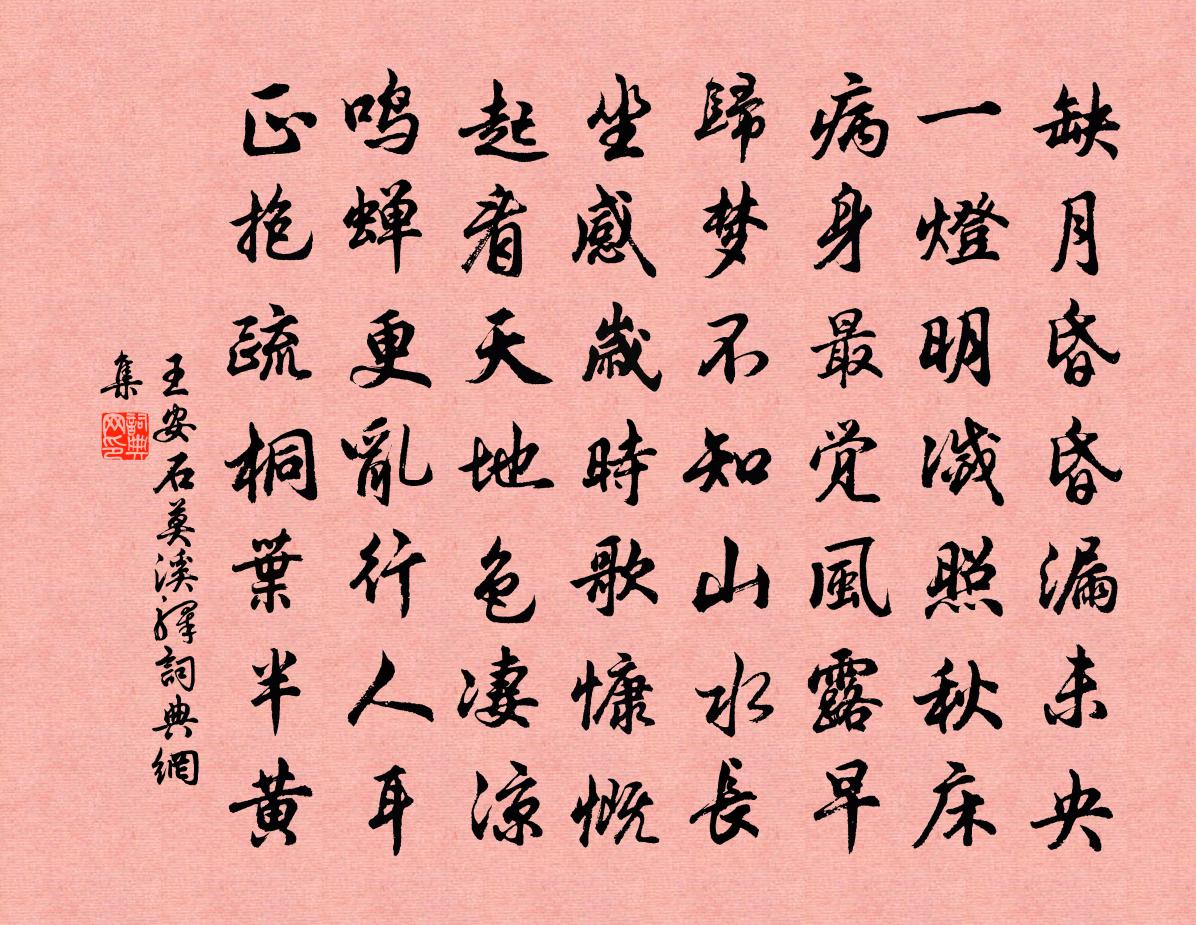 缺月昏昏漏未央
一燈明滅照秋床
病身最觉風露早
歸梦不知山水長
坐感歲時歌慷慨
起看天地色凄涼
鸣蝉更亂行人耳
正抱疏桐葉半黄
王安石葽溪驛詞典網
集
詞典
网印